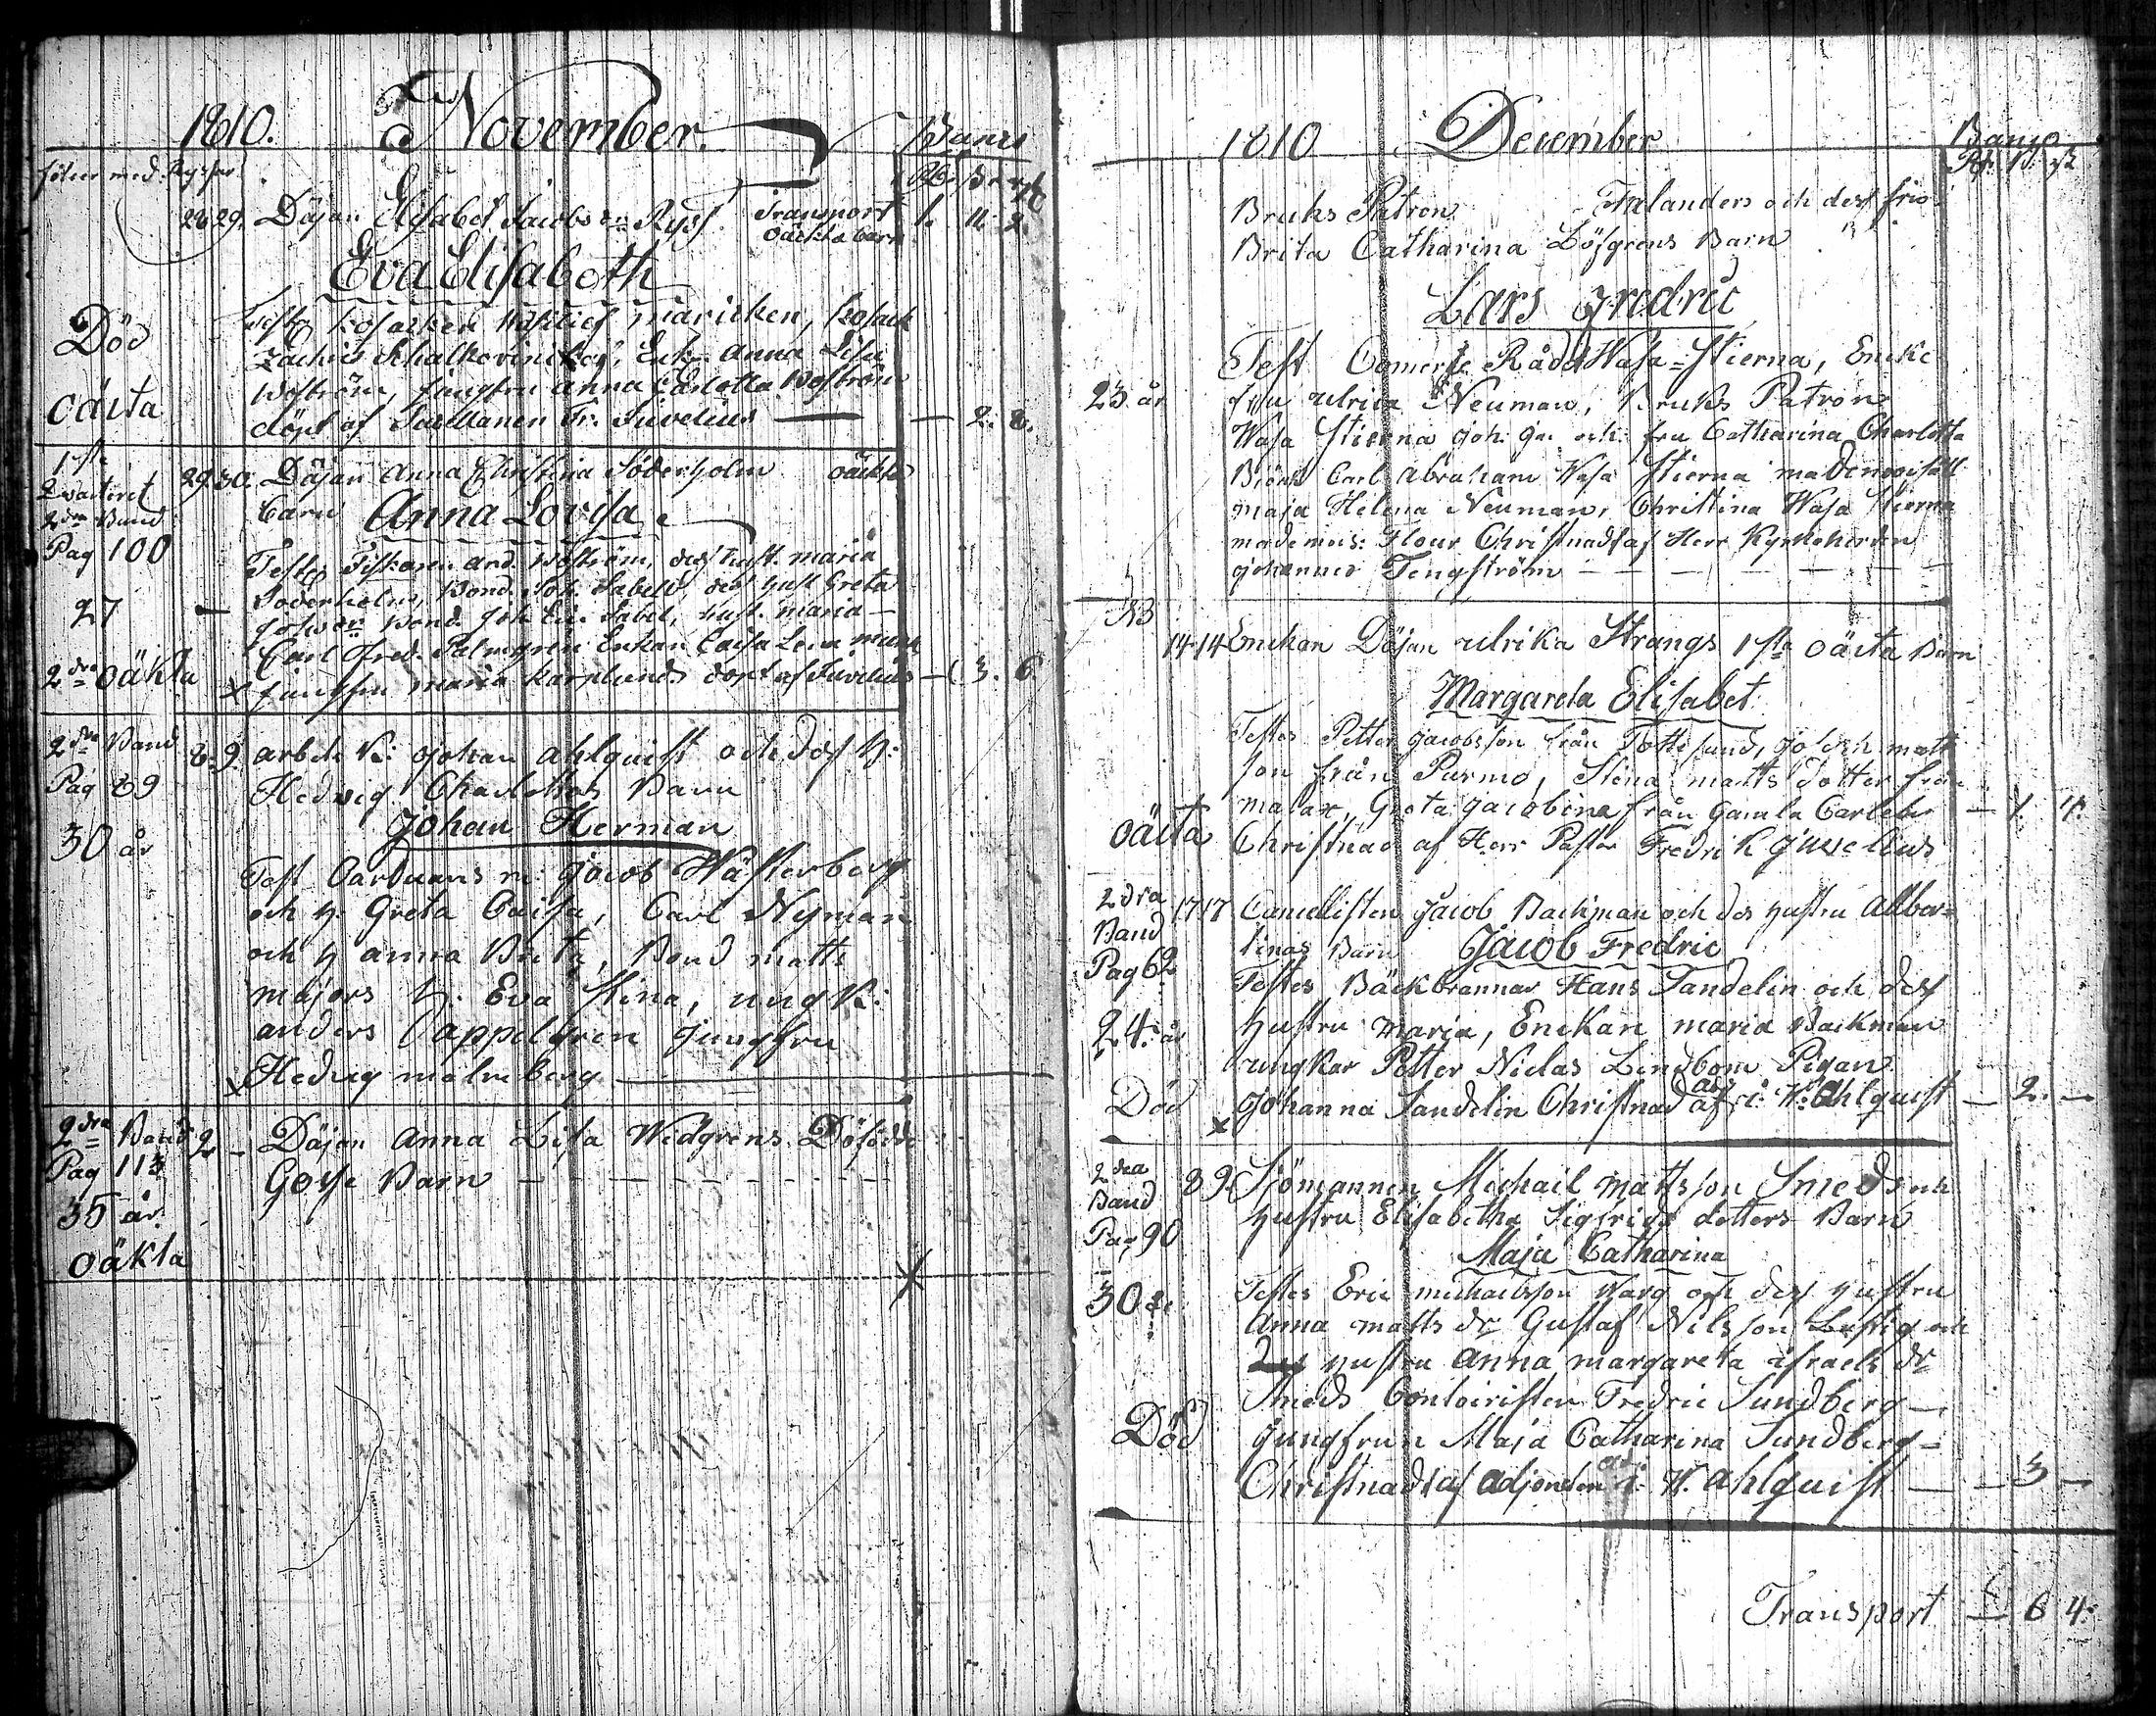 1810. November. Banco
födes med Ryssar
28 29. Däjan Elisabet Jacobs dr Ryss Transport 1. 11. 2.
oäckta barn
Eva Elisabeth
Död
Test Kosacken maricken, Kosack
Zachris Schalkovinikof, Enk. Anna Lisa
Wöström, jungfru Anna Carlotta Boström
oäcta
döpt af Past Fr. Juvelius — — 2. 8.
1sta
2 vartiret
2dra Band
Pag 100
29 30. Däjan Anna Christina Söderholm oäckta
barn Anna Lovisa
Test Fiskaren And. Wöström, dess hust. maria
27
Söderholm, Bond. Joh. Sabel, des hust Greta
Bond. Joh Er. Sabel, hust. maria —
Carl Fred. Palmgren Enkan Caisa Lena munck
2dra oäkta
x jungfru maria Karplunds döpt af Juvelius — 3. 6.
2dra Band
Pag 89
8. 9. arbets K: Johan Ahlquist och des h:
Hedvig Charlottas Barn
30 år
Johan Herman
Test Carduans m: Jacob Wästerberg
och h. Greta Caisa, Carl Nyman
och h anna Brita, Bond matts
majors h: Eva Stina, ung K:
anders Cappelgren Jungfru
x Hedvig malmberg —
2dra Band
Pag 113
35 år.
oäkta
2 - Däjan Anna Lisa Widgrens Dödfödde
Gosse Barn — — — — — — — —
1810 December Banco
Rd. s. rst
Bruks Patron Falanders och dess fru
Brita Catharina Löfgrens Barn
Lars Fredric
23 år
Test Comerse Rådet Wasa=Stierna, Encke
fru ulrica Neuman, Bruks Patron
Wasa Stierna Joh. Ja. och fru Catharina Charlotta
Björk Carl Abraham Wasa Stierna mademoisäll
maja Helena Neuman, Christina Wasa Stierna
mademois: Flour Christnadt af Herr Kyrkoherden
Johannes Tengström — — — — — — —
NB
14 14 Enckan Däjan ulrika Strangs 1sta oäcta Barn
Margareta Elisabet
Testes Petter Jacobsson från Tottesund, Joh matts
son från Purmo, Stina matts dotter från
malax, Greta Jacobina från Gamla Carleby — 1. 4.
oäcta
Christnad af Herr Pastor Fredrik Juvelius
2dra
Band
Pag 62
24. år
Död
17 17 Cancellisten Jacob Backman och des hustru Allber=
tinas Barn Jacob Fredric
Testes Bäckbrännar Hans Sandelin och dess
hustru maria, Enckan maria Backman
ungkar Petter Niclas Lindbom Pigan
x Johanna Sandelin Christnad af adj i: W: Ahlquist — 2. —
2dra
Band
Pag 90
8 9 Sjömannen Michail mattsson Smeds och
hustru Elisabetha Sigfrids dotters Barn
Maja Catharina
30 år
Testes Eric michaelsson Warg och dess hustru
Anna matts dr Gustaf Nilsson Lustig och
hustru Anna margareta israels dr
Smeds Contoiristen Fredric Sundberg —
Död
Jungfrun Maja Catharina Sundberg —
Christnadt af adjoncten i: W. Ahlquist — — 3 —
Transport — 6 4.